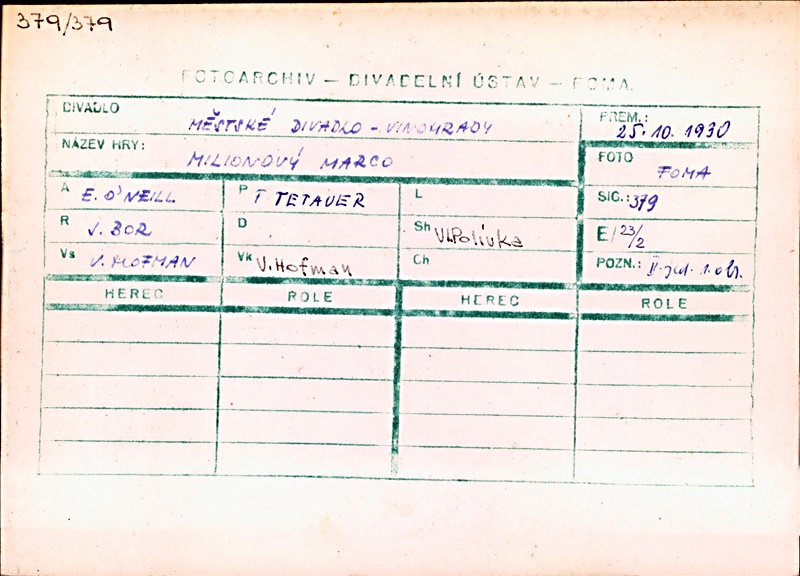 379/379
FOTOARCHIV — DIVADELNÍ ÚSTAV — FOMA.
DIVADLO MĚSTSKÉ DIVADLO - VINOHRADY
PREM.: 25. 10. 1930
NÁZEV HRY: MILIONOVÝ MARCO
FOTO FOMA
A E. O'NEILL P F TETAUER L
SIG.: 379
R J. BOR D Sh Vl.Polívka
E/23/2
Vs V. HOFMAN Vk V. Hofman Ch
POZN.: II. jed. 1. obr.
HEREC ROLE HEREC ROLE